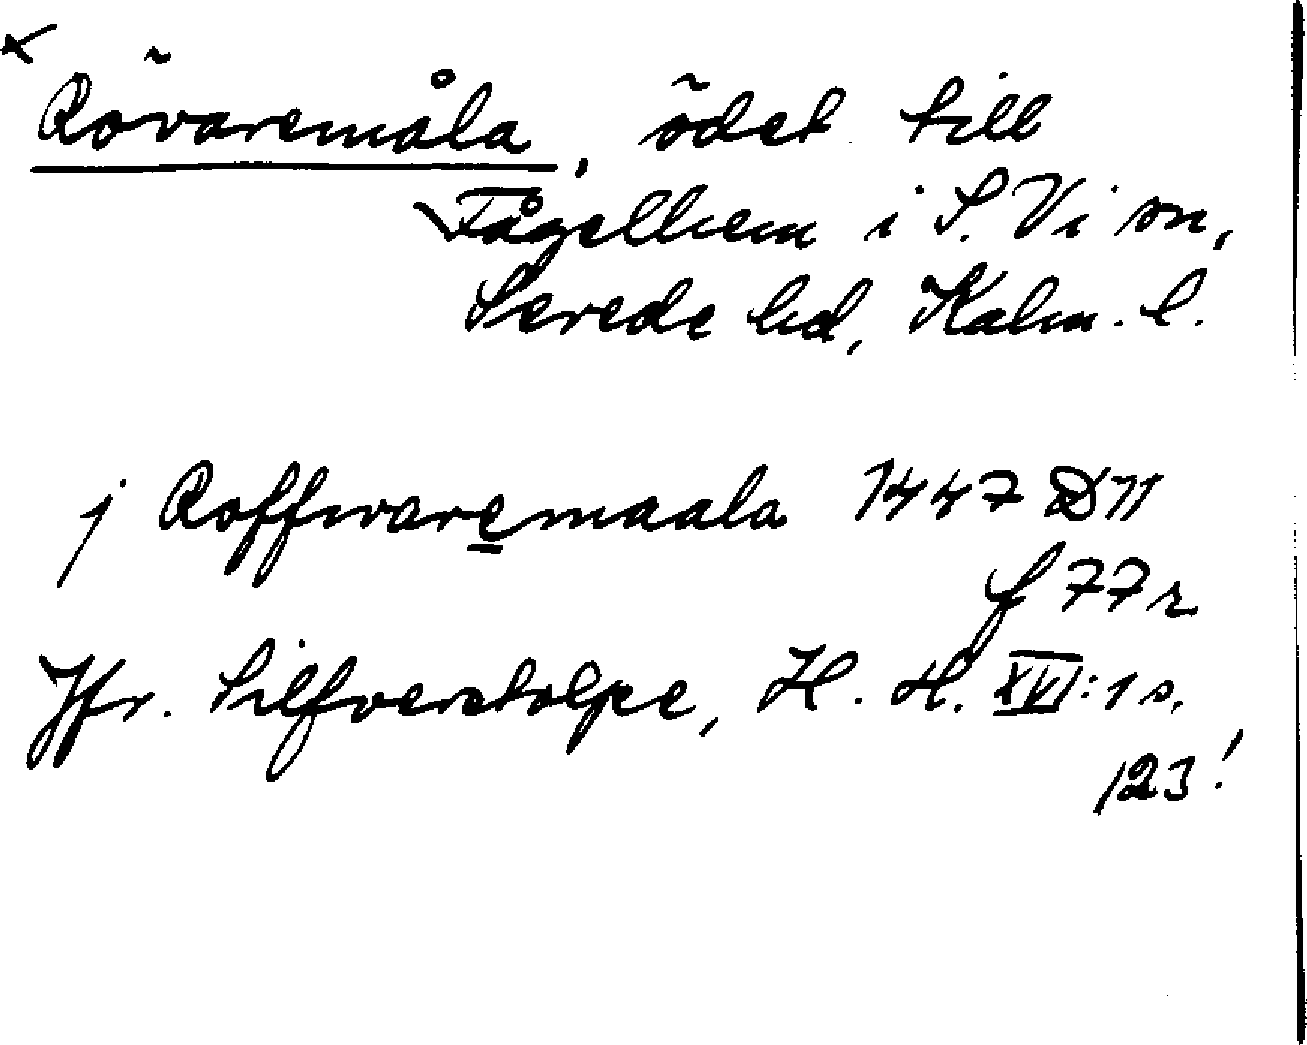 x
Rövaremåla, ödet till
Fågelhem i S. Vi sn,
Serede hd, Kalm. l.
j Roffwaremaala 1447 D11
f 77r
Jfr. Silfverstolpe, H. H. XVI:1 s.
123!